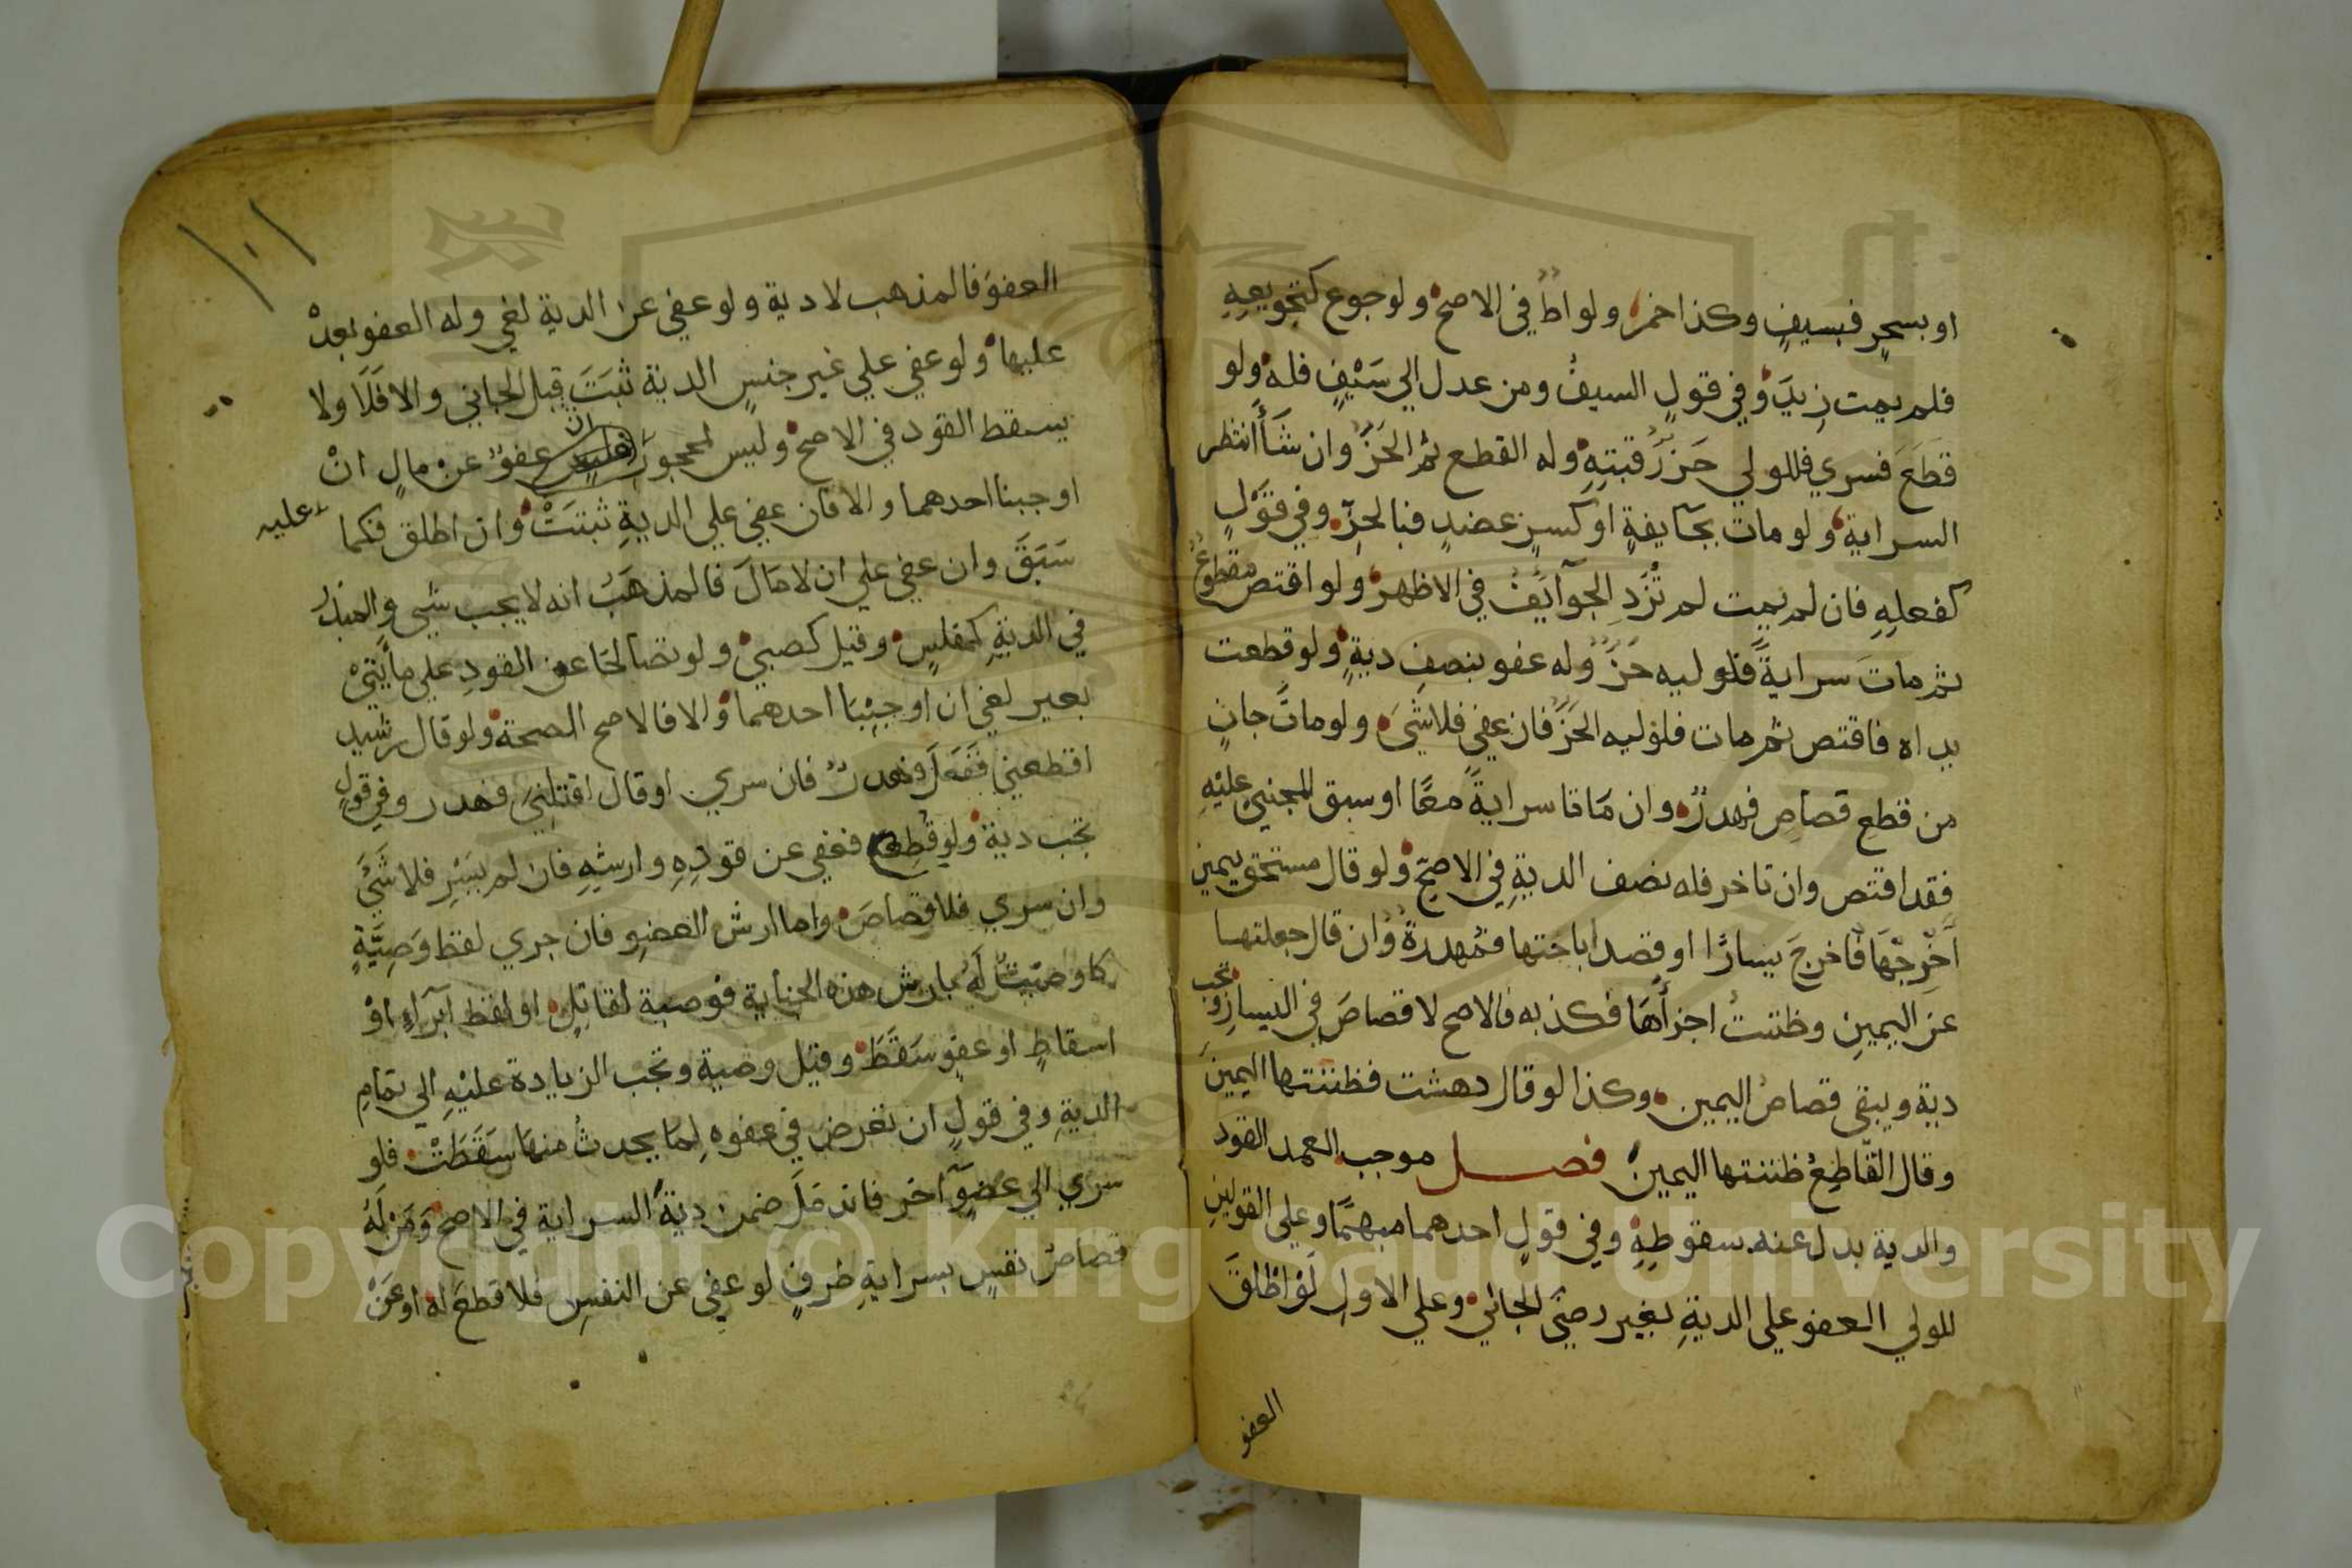 او بسحر فبسيف وكذا خمر ولواط في الاصح ولو جوع كتجويعه
فلم يمت زيد وفي قول السيف ومن عدل الي سَيْفٍ فله ولو
قطع فسري فللولي حز رقبته وله القطع ثم الحز وان شأ انتظر
السراية ولو مات بجآيفة او كسر عضد فبالحز وفي قول
كفعله فان لم يمت لم تُزَد الجوآيف في الاظهر ولو اقتص مقطوع
ثم مات سراية فلوليه حز وله عفو بنصف دية ولو قطعت
يداه فاقتص ثم مات فلوليه الحز فان عفي فلا شيَ ولو مات جان
من قطع قصاص فهدر وان مَاتا سراية معًا او سبق المجني عليه
فقد اقتص وان تاخر فله نصف الدية في الاصح ولو قال مستحق يمين
اَخْرِجْهَا فاخرج يسارًا او قصد اباحتها فمهدرة وان قال جعلتها
عن اليمين وظننت اجزأها فكذبه فالاصح لا قصاص في اليسار وتجب
دية ويبقي قصاص اليمين وكذا لو قال دهشت فظننتها اليمين
وقال القاطع ظننتها اليمين فصل موجب العمد القود
والدية بدل عنه سقوطه وفي قول احدهما مبهمًا وعلي القولين
للولي العفو علي الدية بغير رضي الجاني وعلي الاول لو اطلق
العفو
١٠١
العفو فالمذهب لا دية ولو عفي عن الدية لغي وله العفو بعد
عليها ولو عفي علي غير جنس الدية ثبت قبل الجاني والا فلا ولا
يسقط القود في الاصح وليس لمحجور عفو عن مال ان
عليه
اوجبنا احدهما والا فان عفي علي الدية ثبتت وان اطلق فكما
سَبَقَ وان عفي علي ان لا مَالَ فالمذهب انه لا يجب شي والمبذر
في الدية كمفلس وقيل كصبي ولو تصالحا عن القود علي مأيتي
بعير لغي ان اوجبنا احدهما والا فالاصح الصحة ولو قال رشيد
اقطعني ففعل فهدر فان سري او قال اقتلني فهدر وفي قول
تجب دية ولو قطع فعفي عن قوده وارشه فان لم يسر فلا شَيَ
وان سري فلا قصاص واما ارش العضو فان جري لفظ وَصِيَّةٍ
كاوصيت له بارش هذه الجناية فوصية لقاتل او لفظ ابرآء او
اسقاط او عفو سَقَطَ وقيل وصية وتجب الزيادة عليه الي تمام
الدية وفي قول ان تعرض في عفوه لما يحدث منها سقطت فلو
سري الي عضو آخر فاندمل ضمن دية السراية في الاصح ومن له
قصاص نفس بسراية طرف لو عفي عن النفس فلا قطع له او عن
Copyright © King Saud University